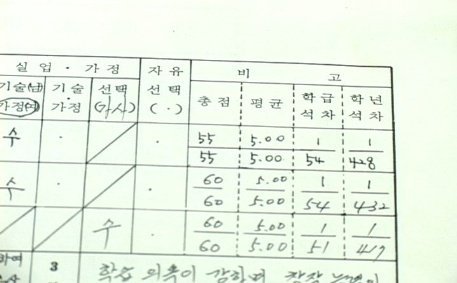 실업·가정 자유 비고
기술(남) 기술 선택 선택 총점 평균 학급 학년
가정(여) · 가정 (가사) (·) 석차 석차
수 · · 55 5.00 1 1
55 5.00 54 428
수 · · 60 5.00 1 1
60 5.00 54 432
수 · 60 5.00 1 1
60 5.00 51 417
하여 3 학습 의욕이 강하며